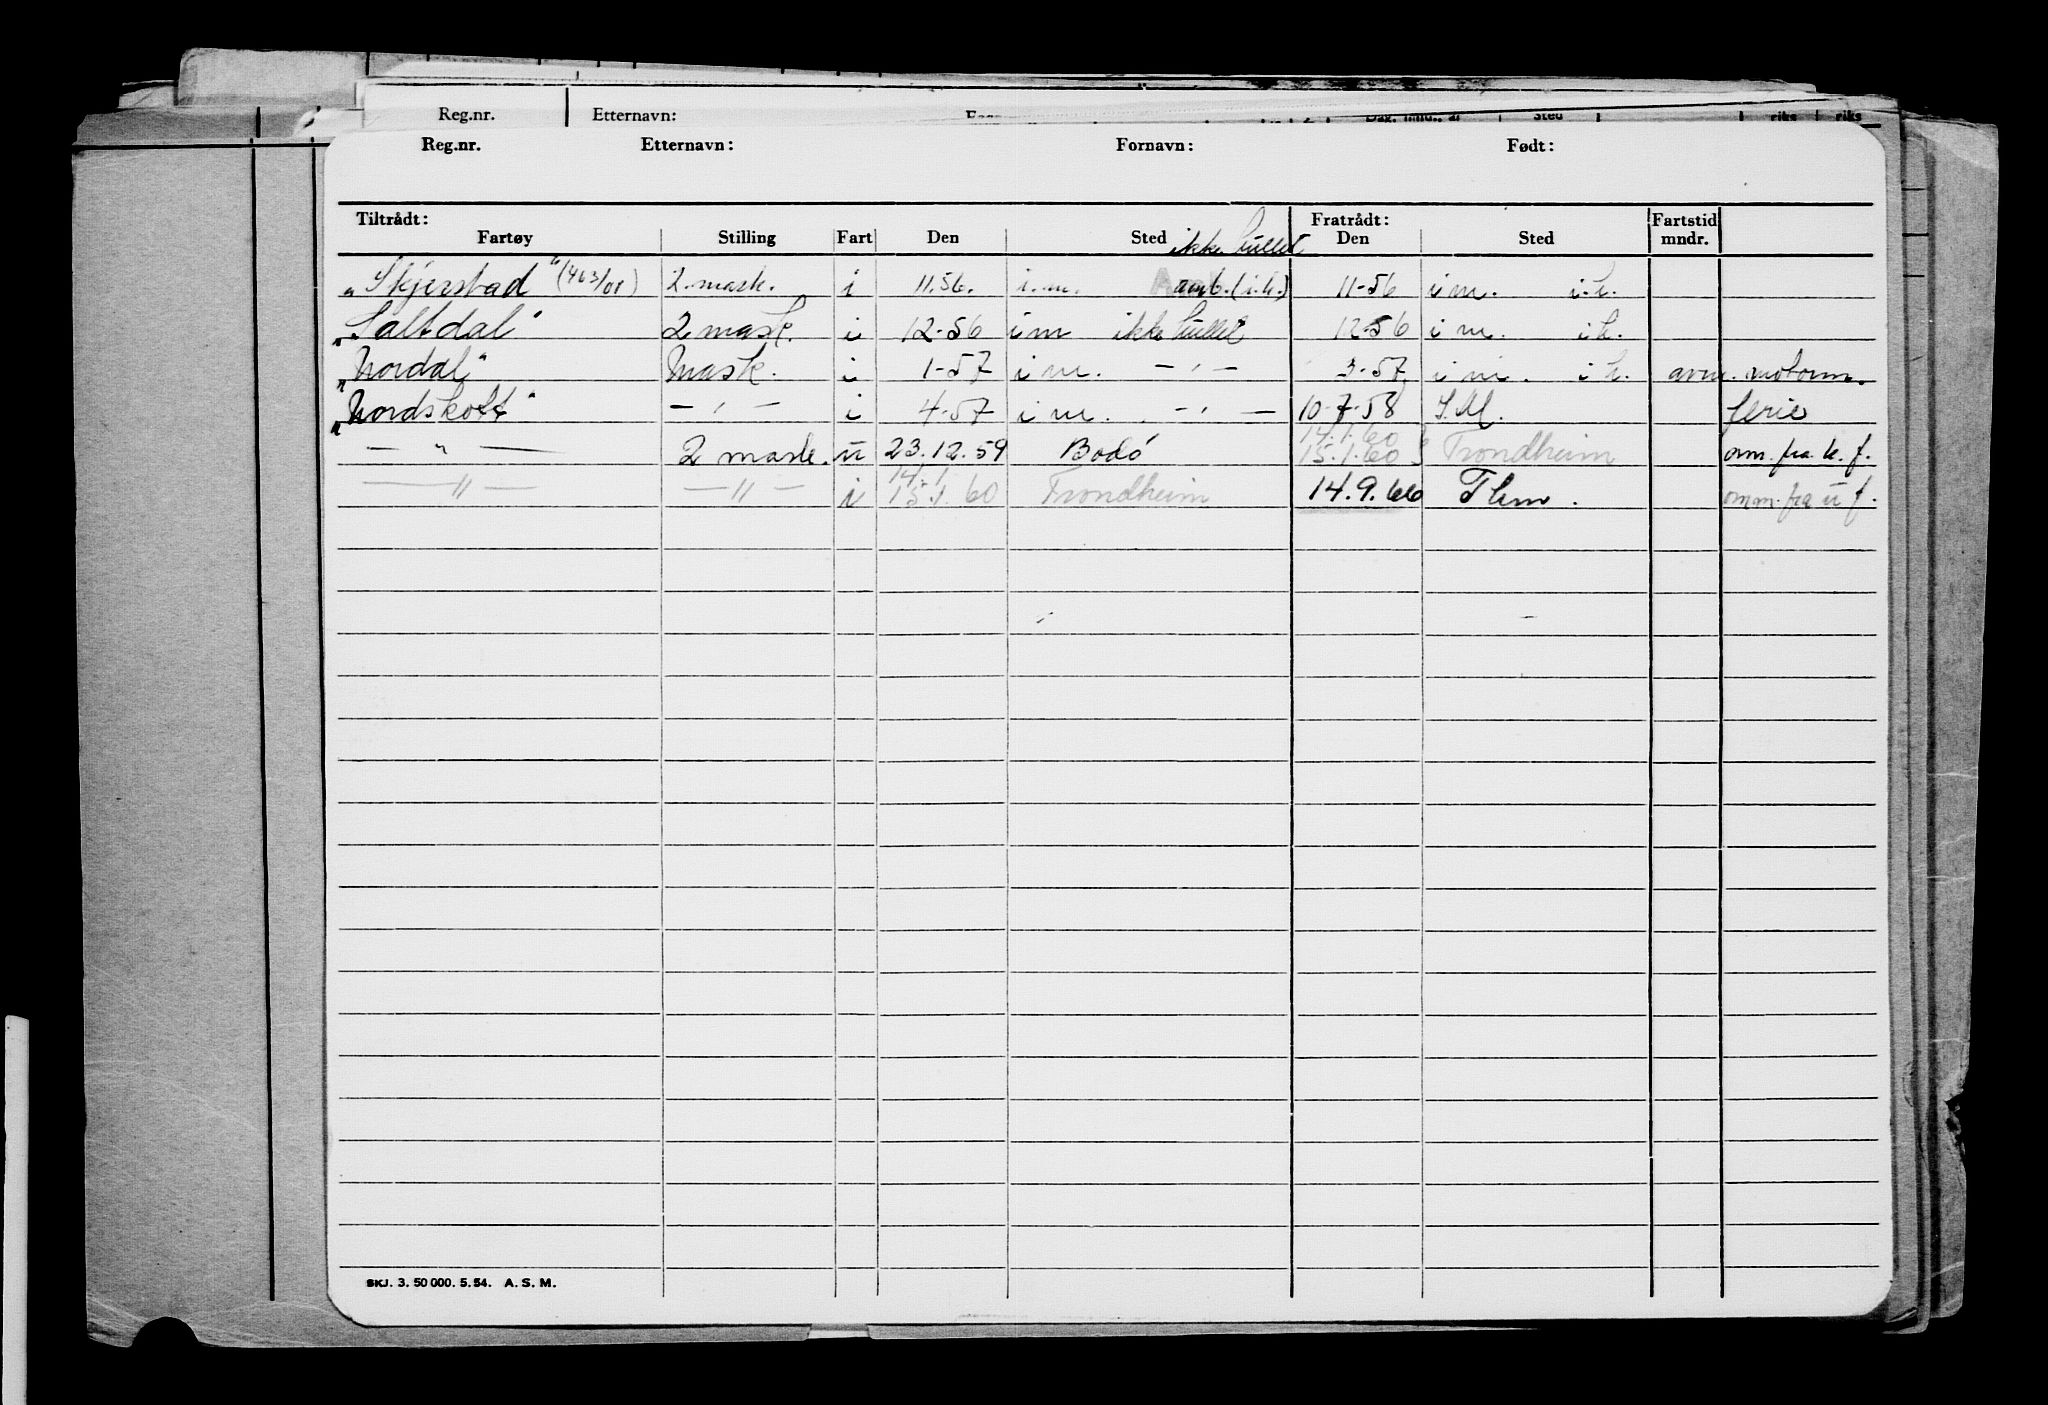 Reg.nr. Etternavn: Sted riks riks
Reg.nr. Etternavn: Fornavn: Født:
Tiltrådt: Fratrådt: Fartstid
Fartøy Stilling Fart Den Sted Den Sted mndr.
ikke hullet
"Skjerstad" (463/01) 2. mask. i 11.56. i.m. amb. (i.h.) 11-56 i m. i.h.
"Saltdal" 2 mask. i 12-56 i m ikke hullet 12-56 i m. i h.
"Nordal" Mask. i 1-57 i m. -"- 3-57 i m. i h. avm. motorm.
"Nordskott" -"- i 4-57 i m. -"- 10-7-58 I.M. ferie
14.1.60
-"- 2 mask. u 23.12.59 Bodó 15.1.60 Trondheim om. fra k. f.
14.1.
-"- -"- i 15.1.60 Trondheim 14.9.60 Thm. omm. fra u f.
SKJ. 3. 50 000. 5. 54. A. S. M.